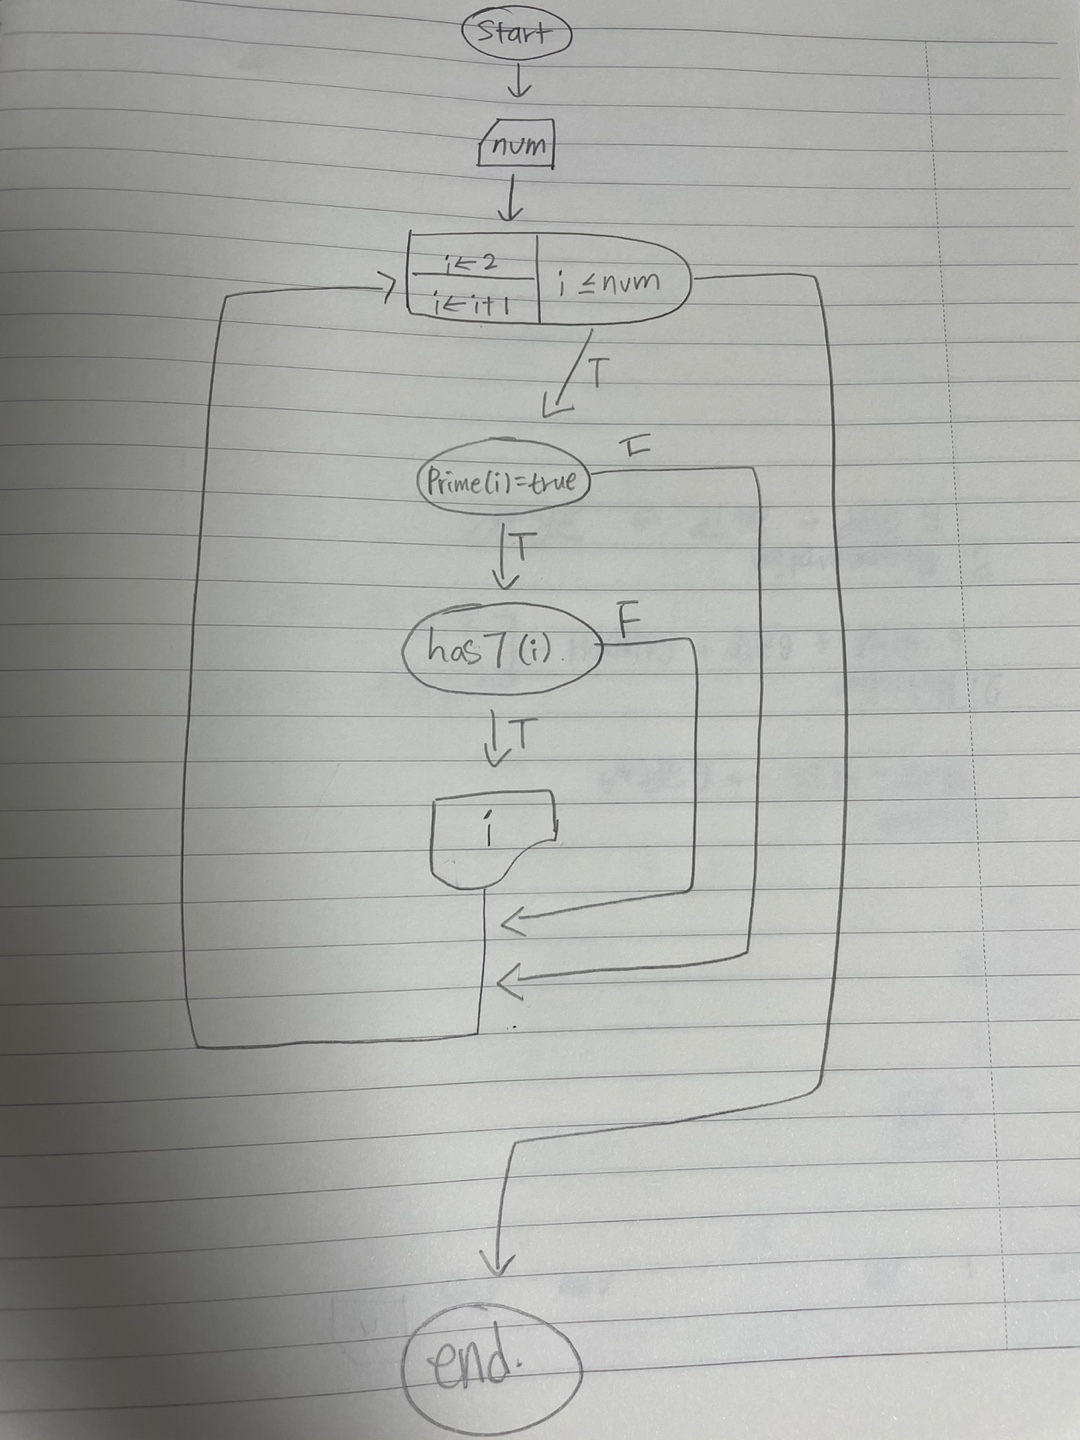 Start
num
i←2
i←i+1
i ≤num
T
F
Prime(i)=true
T
F
has7(i).
T
i
end.